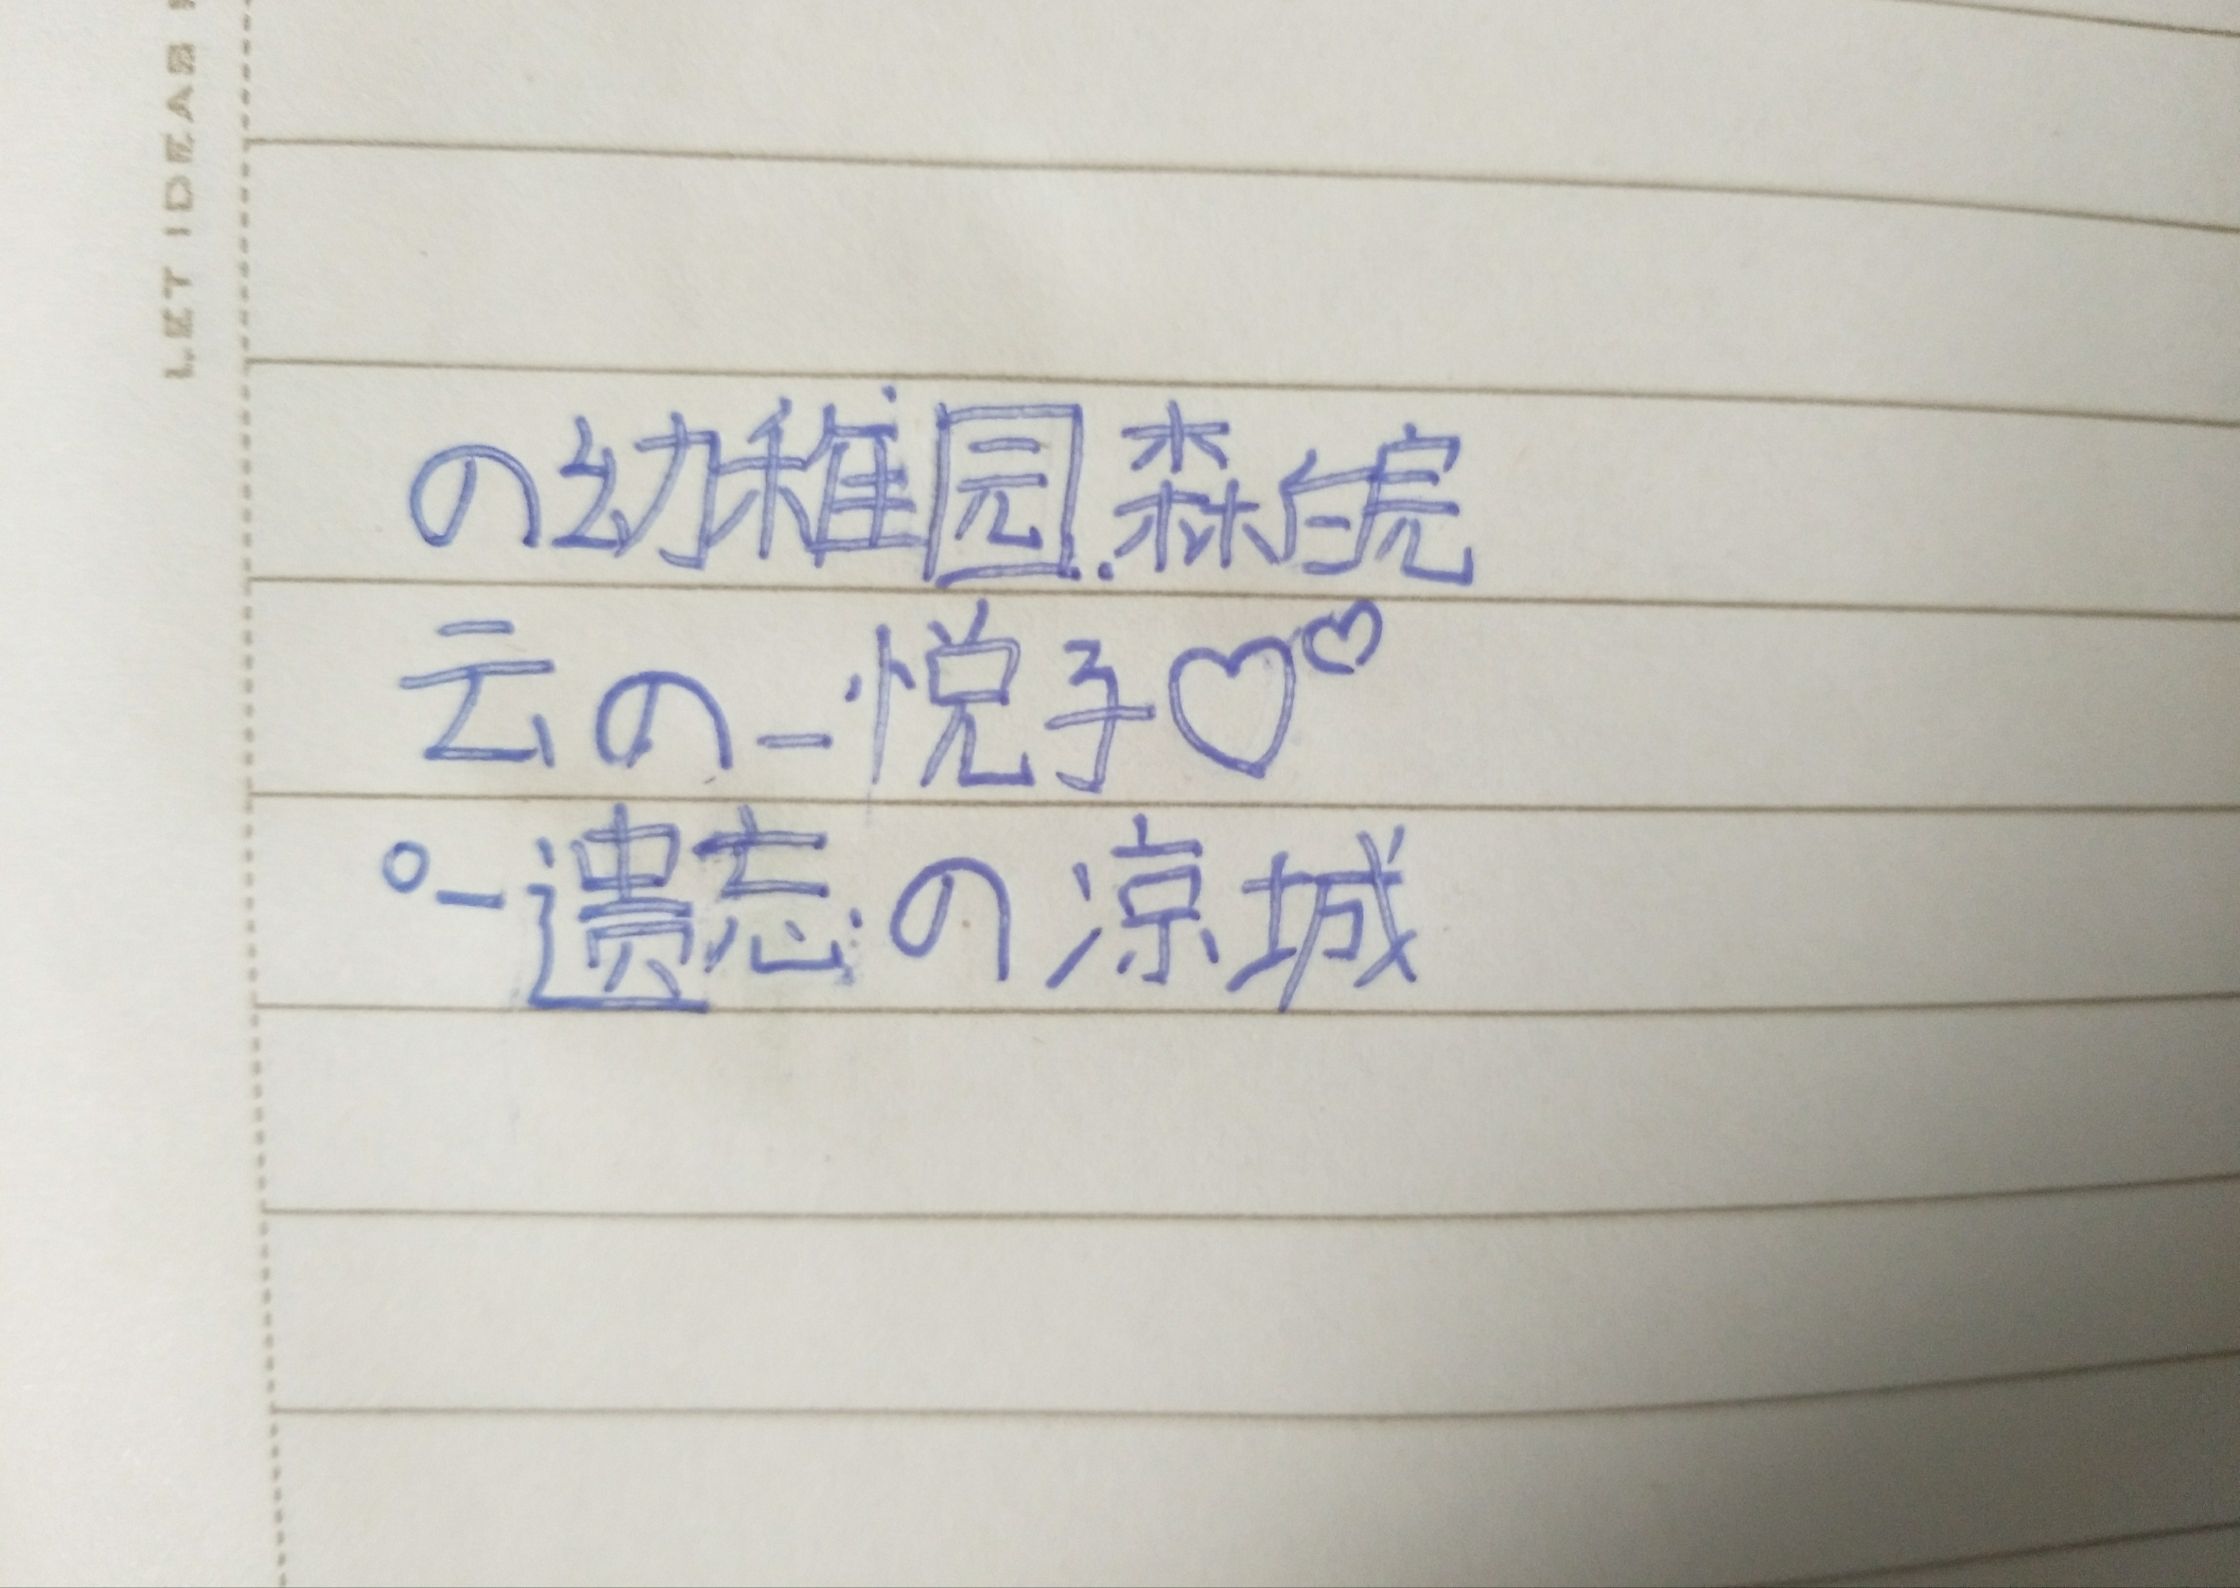 LET IDEAS
の幼稚园.森白虎
云の_悦子♡♡
°-遗忘の凉城